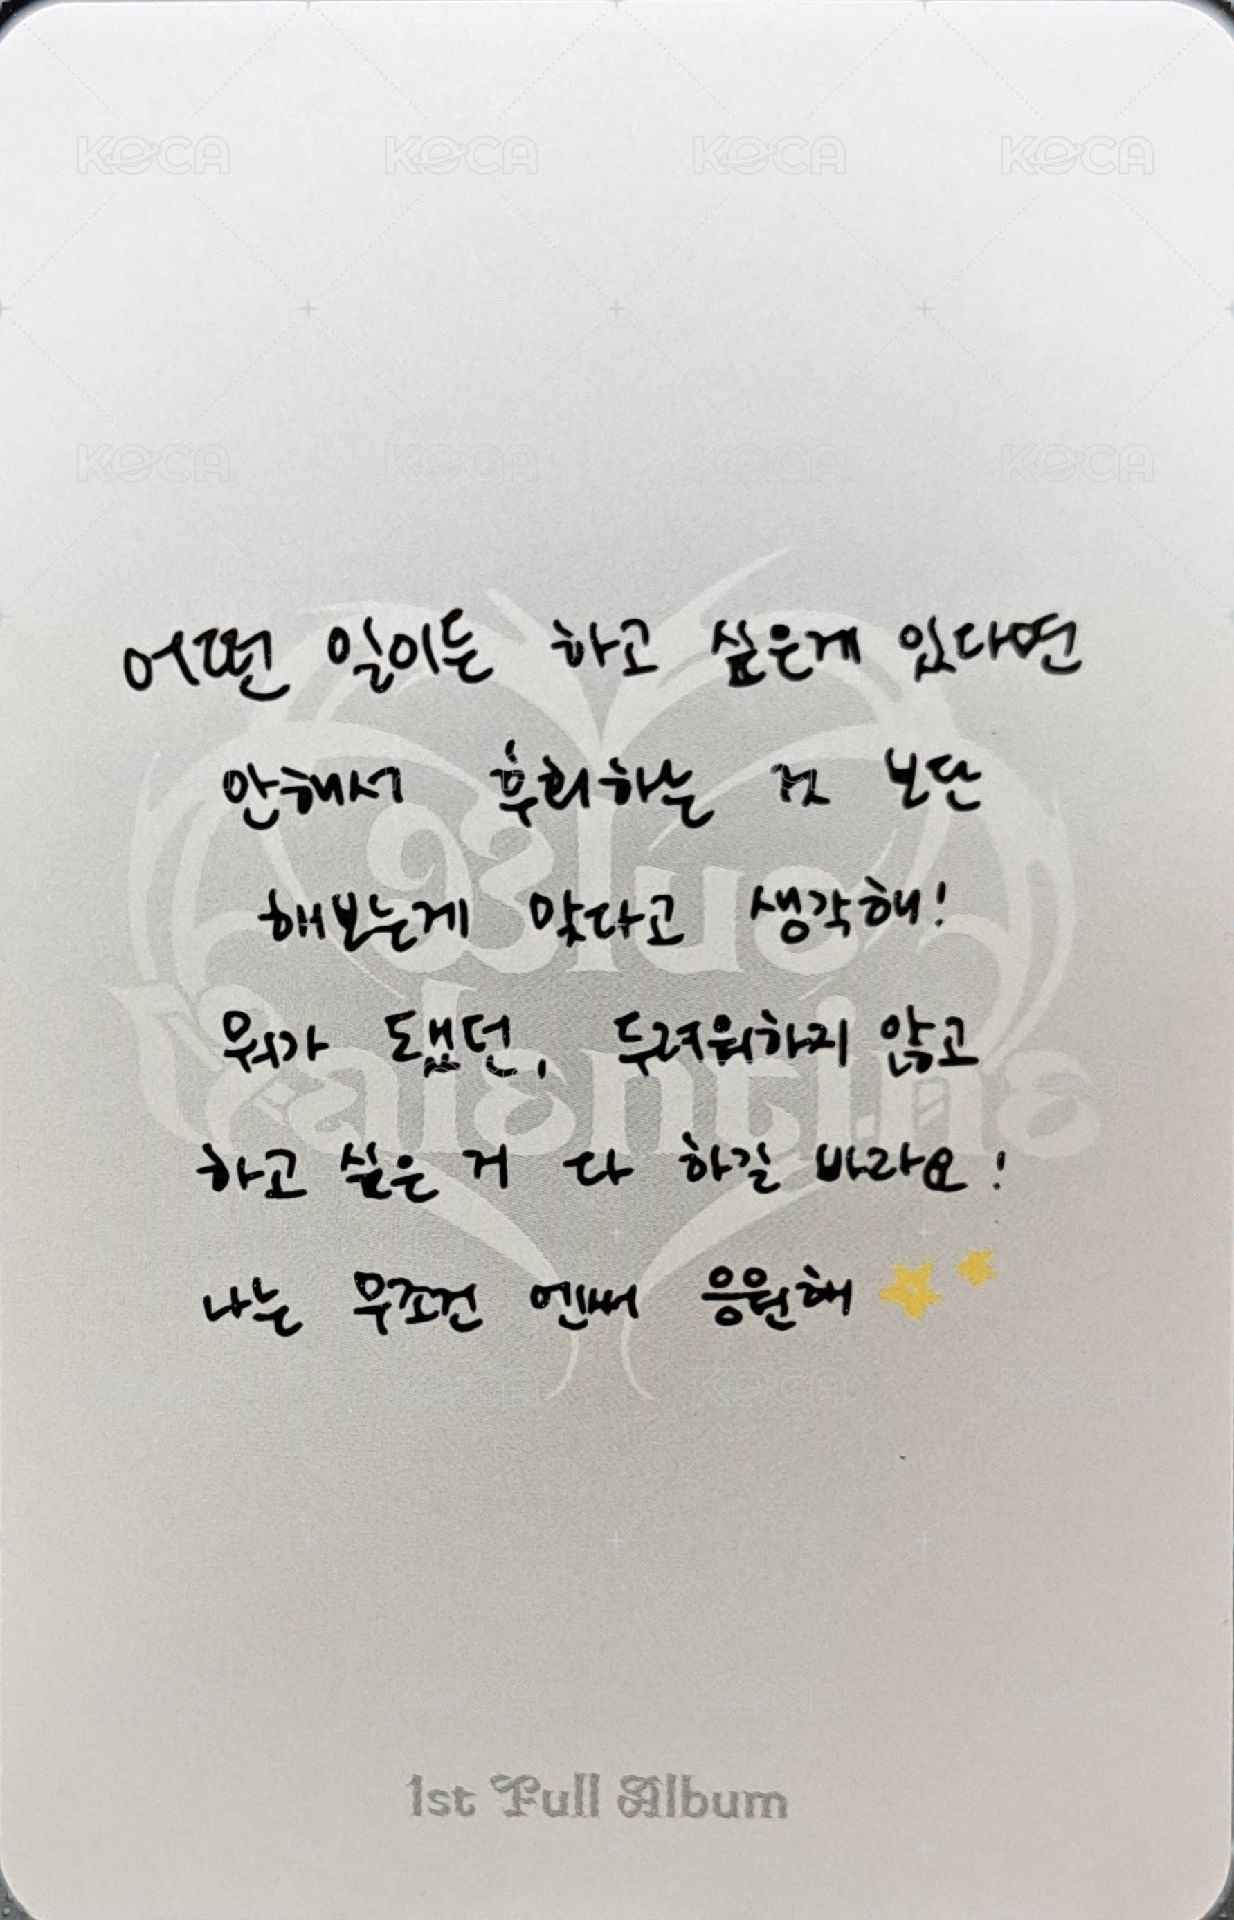 KOCA KOCA KOCA KOCA
KOCA KOCA KOCA KOCA
어떤 일이든 하고 싶은게 있다면
안해서 후회하는 것 보단
해보는게 맞다고 생각해!
뭐가 됐던, 두려워하지 않고
하고 싶은 거 다 하길 바라요!
나는 무조건 엔써 응원해
Blue
Valentine
KOCA KOCA KOCA
KOCA KOCA KOCA
1st Full Album